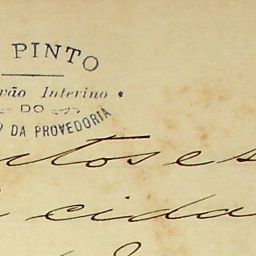 PINTO
rão Interino
DO
DA PROVEDORIA
utoses
cida